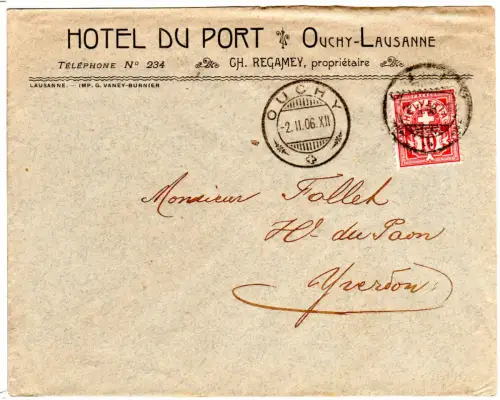 HOTEL DU PORT OUCHY-LAUSANNE
TÉLÉPHONE Nº 234 CH. REGAMEY, propriétaire
LAUSANNE. – IMP. G. VANEY-BURNIER
OUCHY
-2.II.06.XII
HELVETIA
10
Monsieur Falleh
Hl du Paon
Yverdon